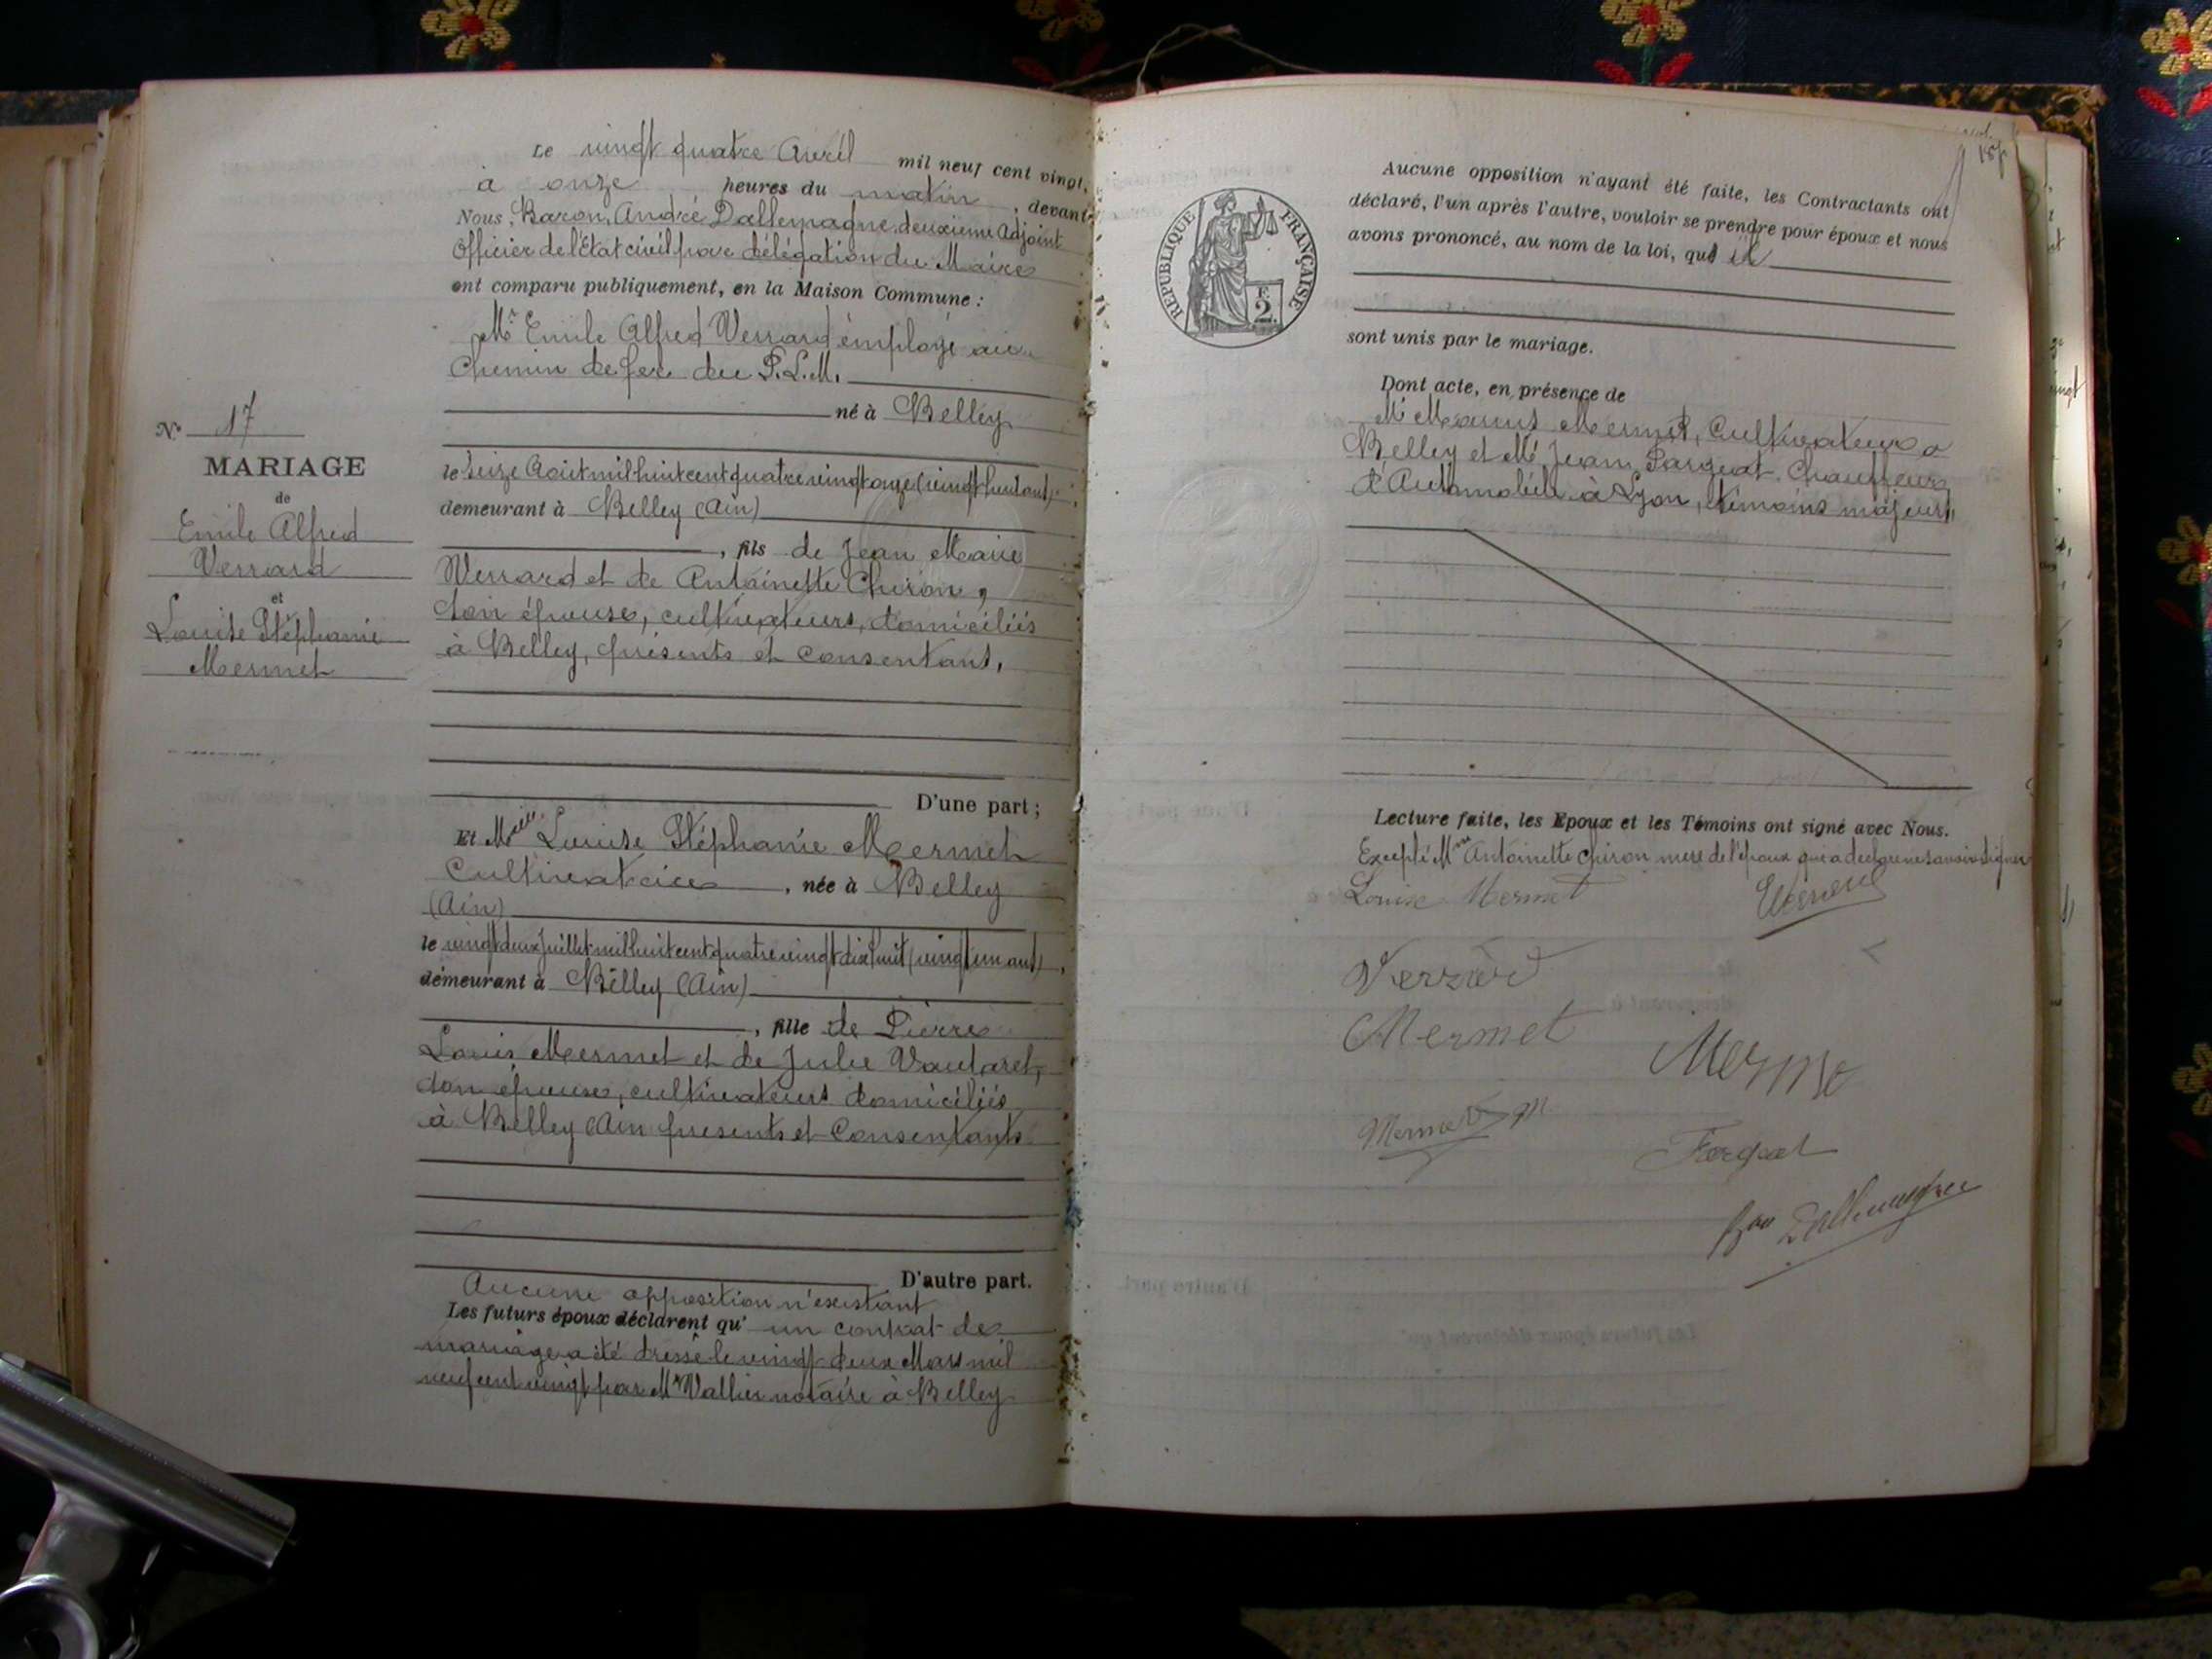 Le vingt quatre Avril mil neuf cent vingt,
à onze heures du matin, devant
Nous, Baron, André Dallemagne, deuxième Adjoint
Officier de l'Etat civil par délégation du Maire
ont comparu publiquement, en la Maison Commune :
Mr Emile Alfred Verrard employé au
Chemin de fer du P.L.M.
né à Belley
le seize Août mil huit cent quatre vingt onze (vingt huit ans),
demeurant à Belley (Ain)
, fils de Jean Marie
Verrard et de Antoinette Chiron,
son épouse, cultivateurs, domiciliés
à Belley, présents et consentant,
D'une part ;
Nº 17
MARIAGE
de
Emile Alfred
Verrard
et
Louise Stéphanie
Mermet
Et Melle Louise Stéphanie Mermet
Cultivatrice, née à Belley
(Ain)
le vingt deux Juillet mil huit cent quatre vingt dix huit (vingt un ans),
demeurant à Belley (Ain)
, fille de Pierre
Louis Mermet et de Julie Vautaret,
son épouse, cultivateurs domiciliés
à Belley (Ain présents et Consentants
D'autre part.
Aucune opposition n'existant
Les futurs époux déclarent qu' un contrat de
mariage a été dressé le vingt deux Mars mil
neuf cent vingt par Me Vallier notaire à Belley
Aucune opposition n'ayant été faite, les Contractants ont
déclaré, l'un après l'autre, vouloir se prendre pour époux et nous
avons prononcé, au nom de la loi, qu'ils
RÉPUBLIQUE FRANÇAISE
F.
2
sont unis par le mariage.
Dont acte, en présence de
Mr Marius Mermet, Cultivateur à
Belley et Mr Jean Farguat, Chauffeur
d'Automobile à Lyon, témoins majeurs,
Lecture faite, les Epoux et les Témoins ont signé avec Nous.
Excepté Mme Antoinette Chiron mère de l'époux qui a déclaré ne savoir signer
Louise Mermet
Verrard
Mermet
Bon Dallemagne